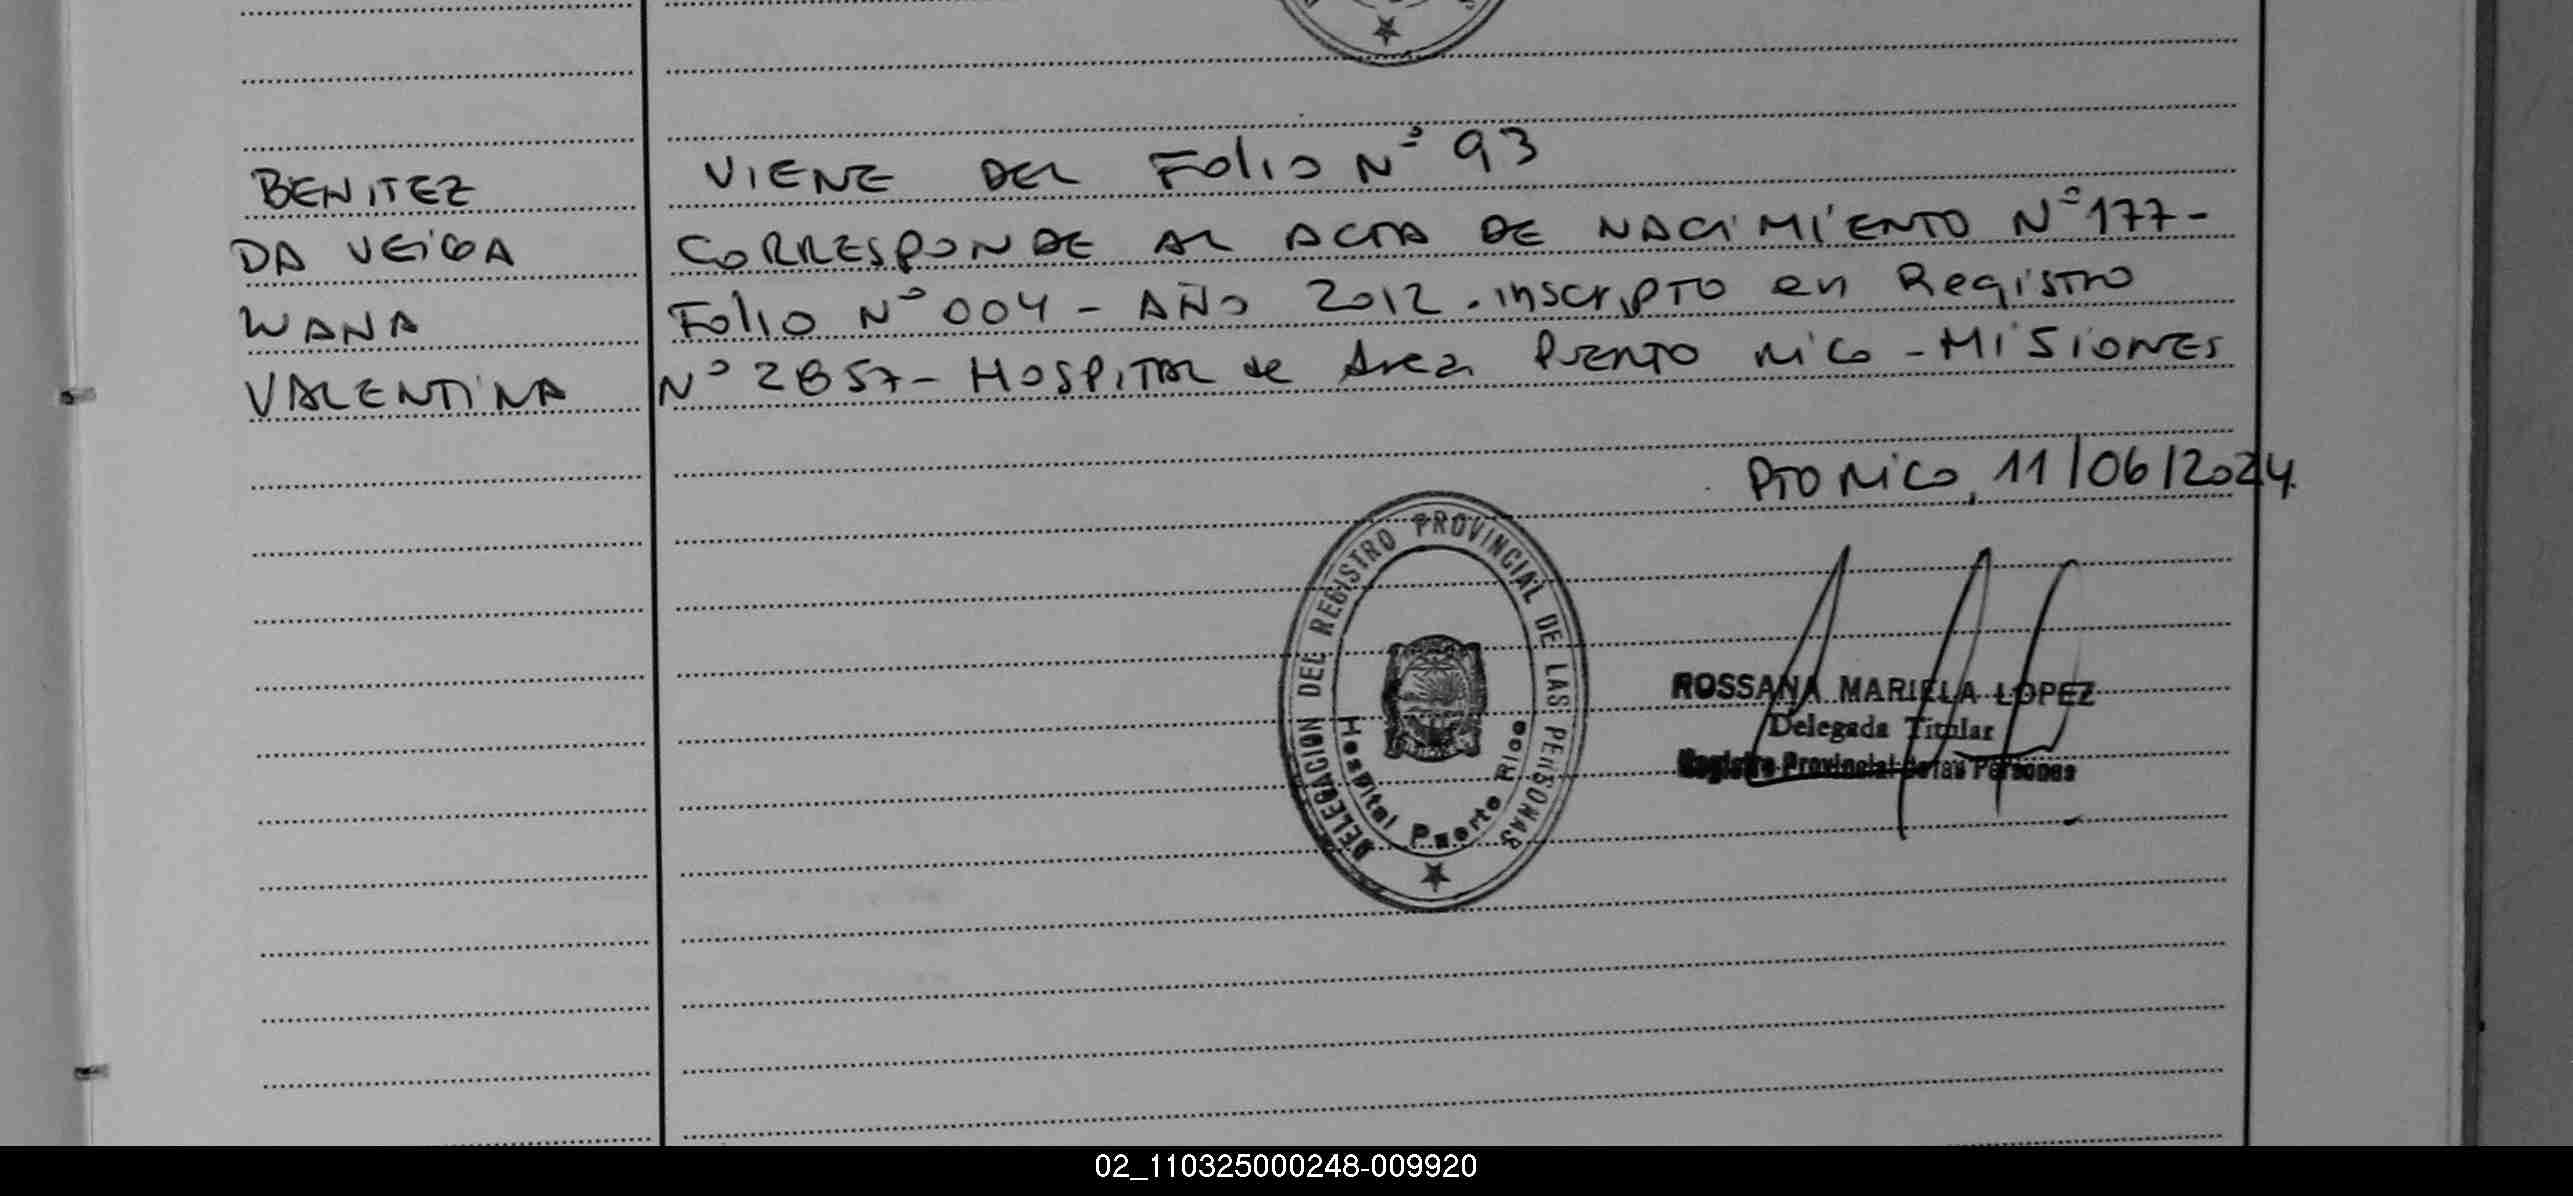 BENITEZ
DA VEiGA
WANA
VALENTINA
VIENE DEL FOLIO Nº 93
CORRESPONDE AL ACTA DE NACIMIENTO Nº 177-
Folio Nº 004 - AÑO 2012. inscripto en Registro
Nº 2857- HOSPITAL de Area PUERTO RICO - MISIONES
PTO RICO, 11/06/2024.
DELEGACION DEL REGISTRO PROVINCIAL DE LAS PERSONAS
Hospital Puerto Rico
ROSSANA MARIELA LOPEZ
Delegada Titular
Registro Provincial de las Personas
02_110325000248-009920